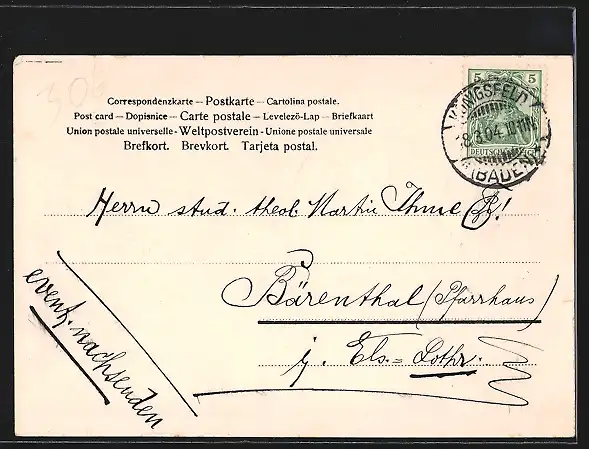 306
Correspondenzkarte – Postkarte – Cartolina postale.
Post card – Dopisnice – Carte postale – Levelező-Lap – Briefkaart
Union postale universelle - Weltpostverein - Unione postale universale
Brefkort. Brevkort. Tarjeta postal.
5 5
KÖNIGSFELD
8.3.04.
(BADEN)
Herrn stud. theol. Martin Ihme
Bärenthal (Pfarrhaus)
i. Els.= Lothr.
event. nachsenden